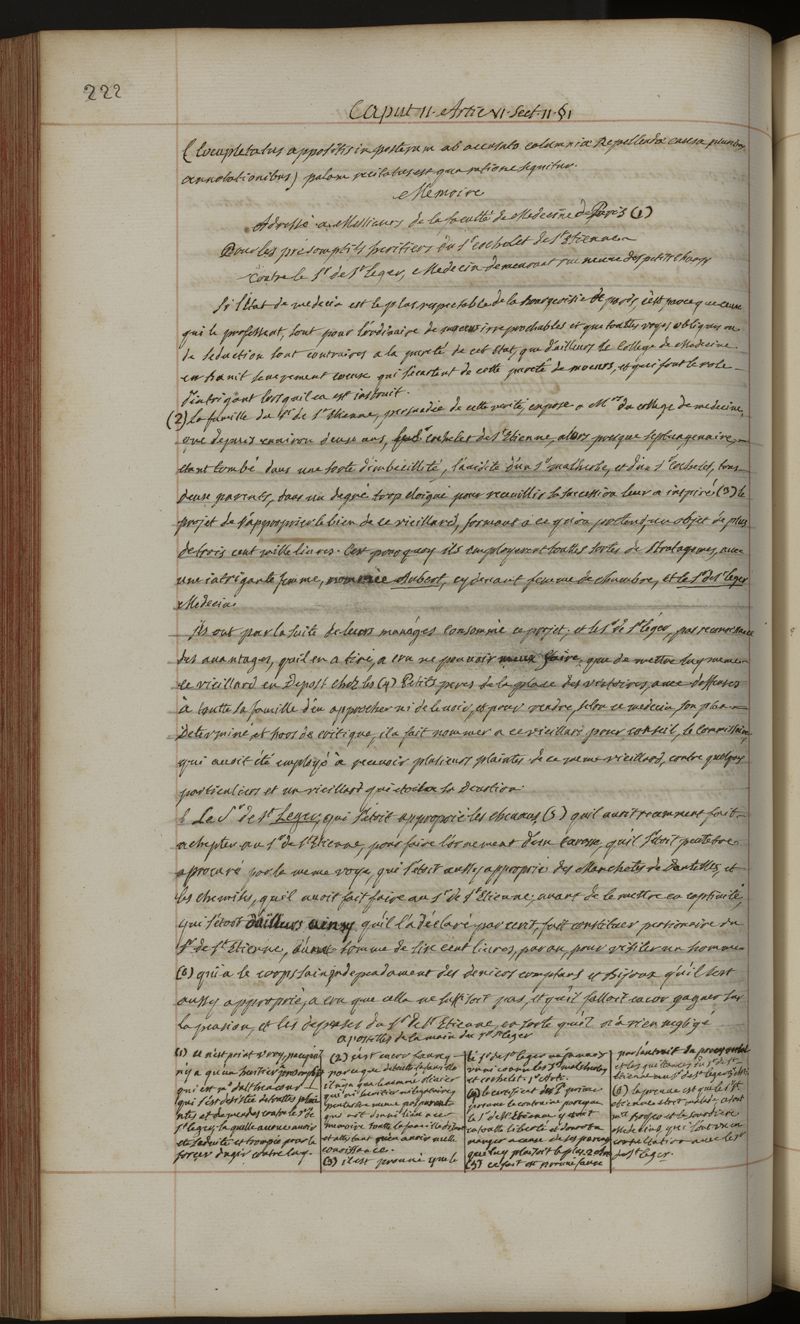 222
Caput II. Artic VI. Sect. II. §1
(locupletatus appositis in posterum ab accusato calomnia repellenda causa pluribus
annotationibus) palam recitatus est qua ratione sequitur.
Memoire
Adressé a Messieurs de la faculté de Medecine de Paris (1)
Pour les présomptifs heritiers du Sr cochelet de St Etienne
Contre le Sr de St leger, Medecin demeurant rue neuve des petits champs
Si l'Etat de medecin est le plus respectable de la bourgeoisie de paris, c'est parce que ceux
qui le professent, sont pour l'ordinaire de moeurs irreprochables et que touttes voyes obliques ou
de seduction sont contraires a la pureté de cet Etat, que d'ailleurs le College de Medecine
en banit severement ceux qui s'ecartent de cette pureté de moeurs, et qui font le role
d'intrigant lors qu'il en est instruit.
(2) la famille du Sr de St Etienne, persuadée de cette verité, expose a Mrs du college de medecine,
que depuis environ deux ans, le Sr cochelet de St Etienne, alors presque septuagenaire,
etant tombé dans une sorte d'imbecilleté, l'avidité d'un Sr malherbe, et d'un Sr cochelet, tous
deux parents, dans un degré trop eloigné pour recueillir sa succession leur a inspiré (3) le
projet de s'approprier le bien de ce vieillard, formant a ce qu'on pretend, un objet de plus
de trois cent mille livres. C'est pourquoy ils employerent touttes sortes de stratagemes, avec
une intrigante femme, nommée Aubert, cy devant femme de chambre, et le Sr de St leger
Medecin.
Ils ont par la suite de leurs manéges consommé ce projet, et le Sr de St léger, par reconnoissance
des avantages, qu'il en a tiré, a cru ne pouvoir mieux faire, que de mettre luy meme
le vieillard en Depost chez les (4) Petits peres de la place des victoires, avec deffenses
à toutte sa famille d'en approcher ni de le voir, et pour rendre, selon ce medecin, son plan
Determiné et hors de critique, il a fait nommer a ce vieillard pour conseil, le commissaire,
qui avoit été employé à recevoir plusieurs plaintes de ce meme vieillard, contre quelques
particuliers et un vieillard qui est a sa Devotion.
Le Sr de St Leger, qui s'etoit approprié les chevaux (5) qu'il avoit recemment fait
achepter au Sr de St Etienne, pour faire l'ornement d'un carosse, qu'il s'etoit peutetre
procuré par la meme voye, qui s'etoit aussy approprié des Manchettes de Dantelles, et
les chemises, qu'il avoit fait faire au Sr de St Etienne, avant de le mettre en captivité,
qui s'etoit d'ailleurs ainsy qu'il l'a déclaré par ecrit, fait constituer pensionaire du
Sr de St Etienne, d'une somme de six cent livres, par an, pour visiter un homme
(6) qui a le corps sain, independament des deniers comptans et bijoux qu'il s'est
aussy approprié, a cru que cella ne suffisoit pas, et qu'il falloit encor gagner sur
la pension, et les depenses du Sr de St Etienne, en sorte qu'il n'a rien negligé
apostilles de la main du Sr St leger
(1) ce n'est point vray, puisqu'il
n'y a qu'un heritier presomptif
qui est Mr d'alheucourt
qui s'est desisté de touttes plain
tes et demandes contre le Sr de
St leger, la quelle avoue avoir
eté seduite et trompée pour la
forcer d'agir contre luy.
(2) c'est encor faux,
parce que de toutte la famille
il n'y a que la nommé olivier
qui
peutestre meme pas parent
qui ait donné lieu a ce
memoire toutte la famille disant
et attestant qu'en avoir nulle
connoissance.
(3) il est prouvé que le
Sr de St leger n'a jamais
vu ni connu les Srs malherbe
et cochelet.
(4) le certificat du P. prieur
prouve le contraire puisque
le Sr de St Etienne y etoit
en toutte liberté et donnoit a
manger a ceux de ses parens
que luy plaisoit le plus
(5) ce fait est prouvé faux
par l'extrait du procez verbal
et les quittances du Sr de St
Etienne au Sr de St leger
(6) la preuve est que le Sr St
etienne etoit malade, c'etoit
mrs
medecins, qui l'ont vu en
consultation avec le Sr
de St leger.